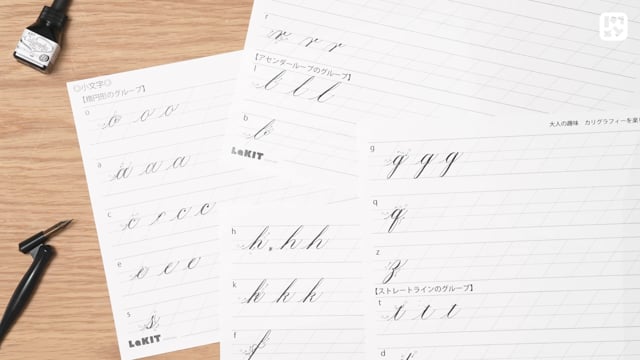 ◎小文字◎
【楕円形のグループ】
o
o o o
a
a a a
c
c c c c
e
e e e
s
s
LeKIT
r
r r r
【アセンダーループのグループ】
l
l l l
b
b
LeKIT
h
h h h
k
k k k
f
f
大人の趣味 カリグラフィーを楽
g
g g g
q
q
z
z
【ストレートラインのグループ】
t
t t t
d